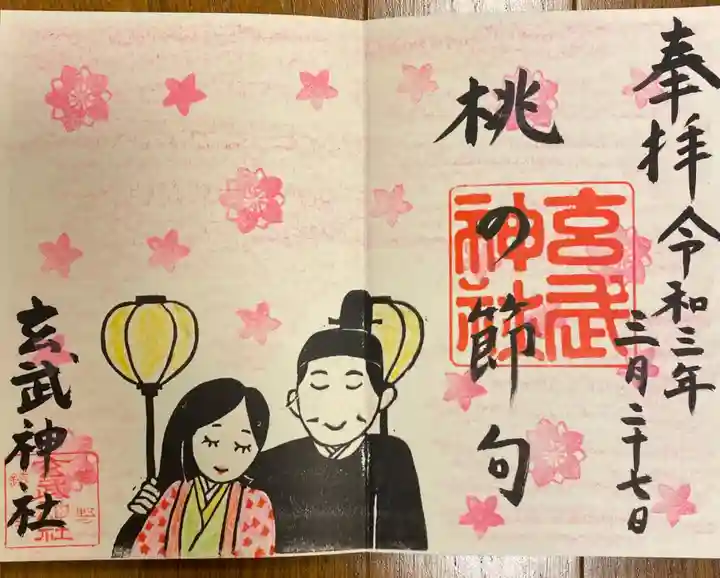 奉拝 令和三年
三月二十七日
桃の節句
玄武
神社
玄武神社